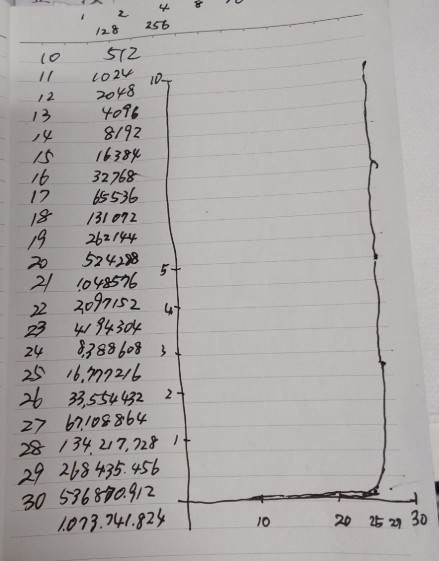 1 2 4 8
128 256
10 512
11 1024
12 2048
13 4096
14 8192
15 16384
16 32768
17 65536
18 131072
19 262144
20 524288
21 1048576
22 2,097152
23 4194304
24 8,388608
25 16,777216
26 33,554432
27 67,108864
28 134,217,728
29 268,435.456
30 536870.912
1.073.741.824
10
5
4
3
2
1
10 20 25 29 30